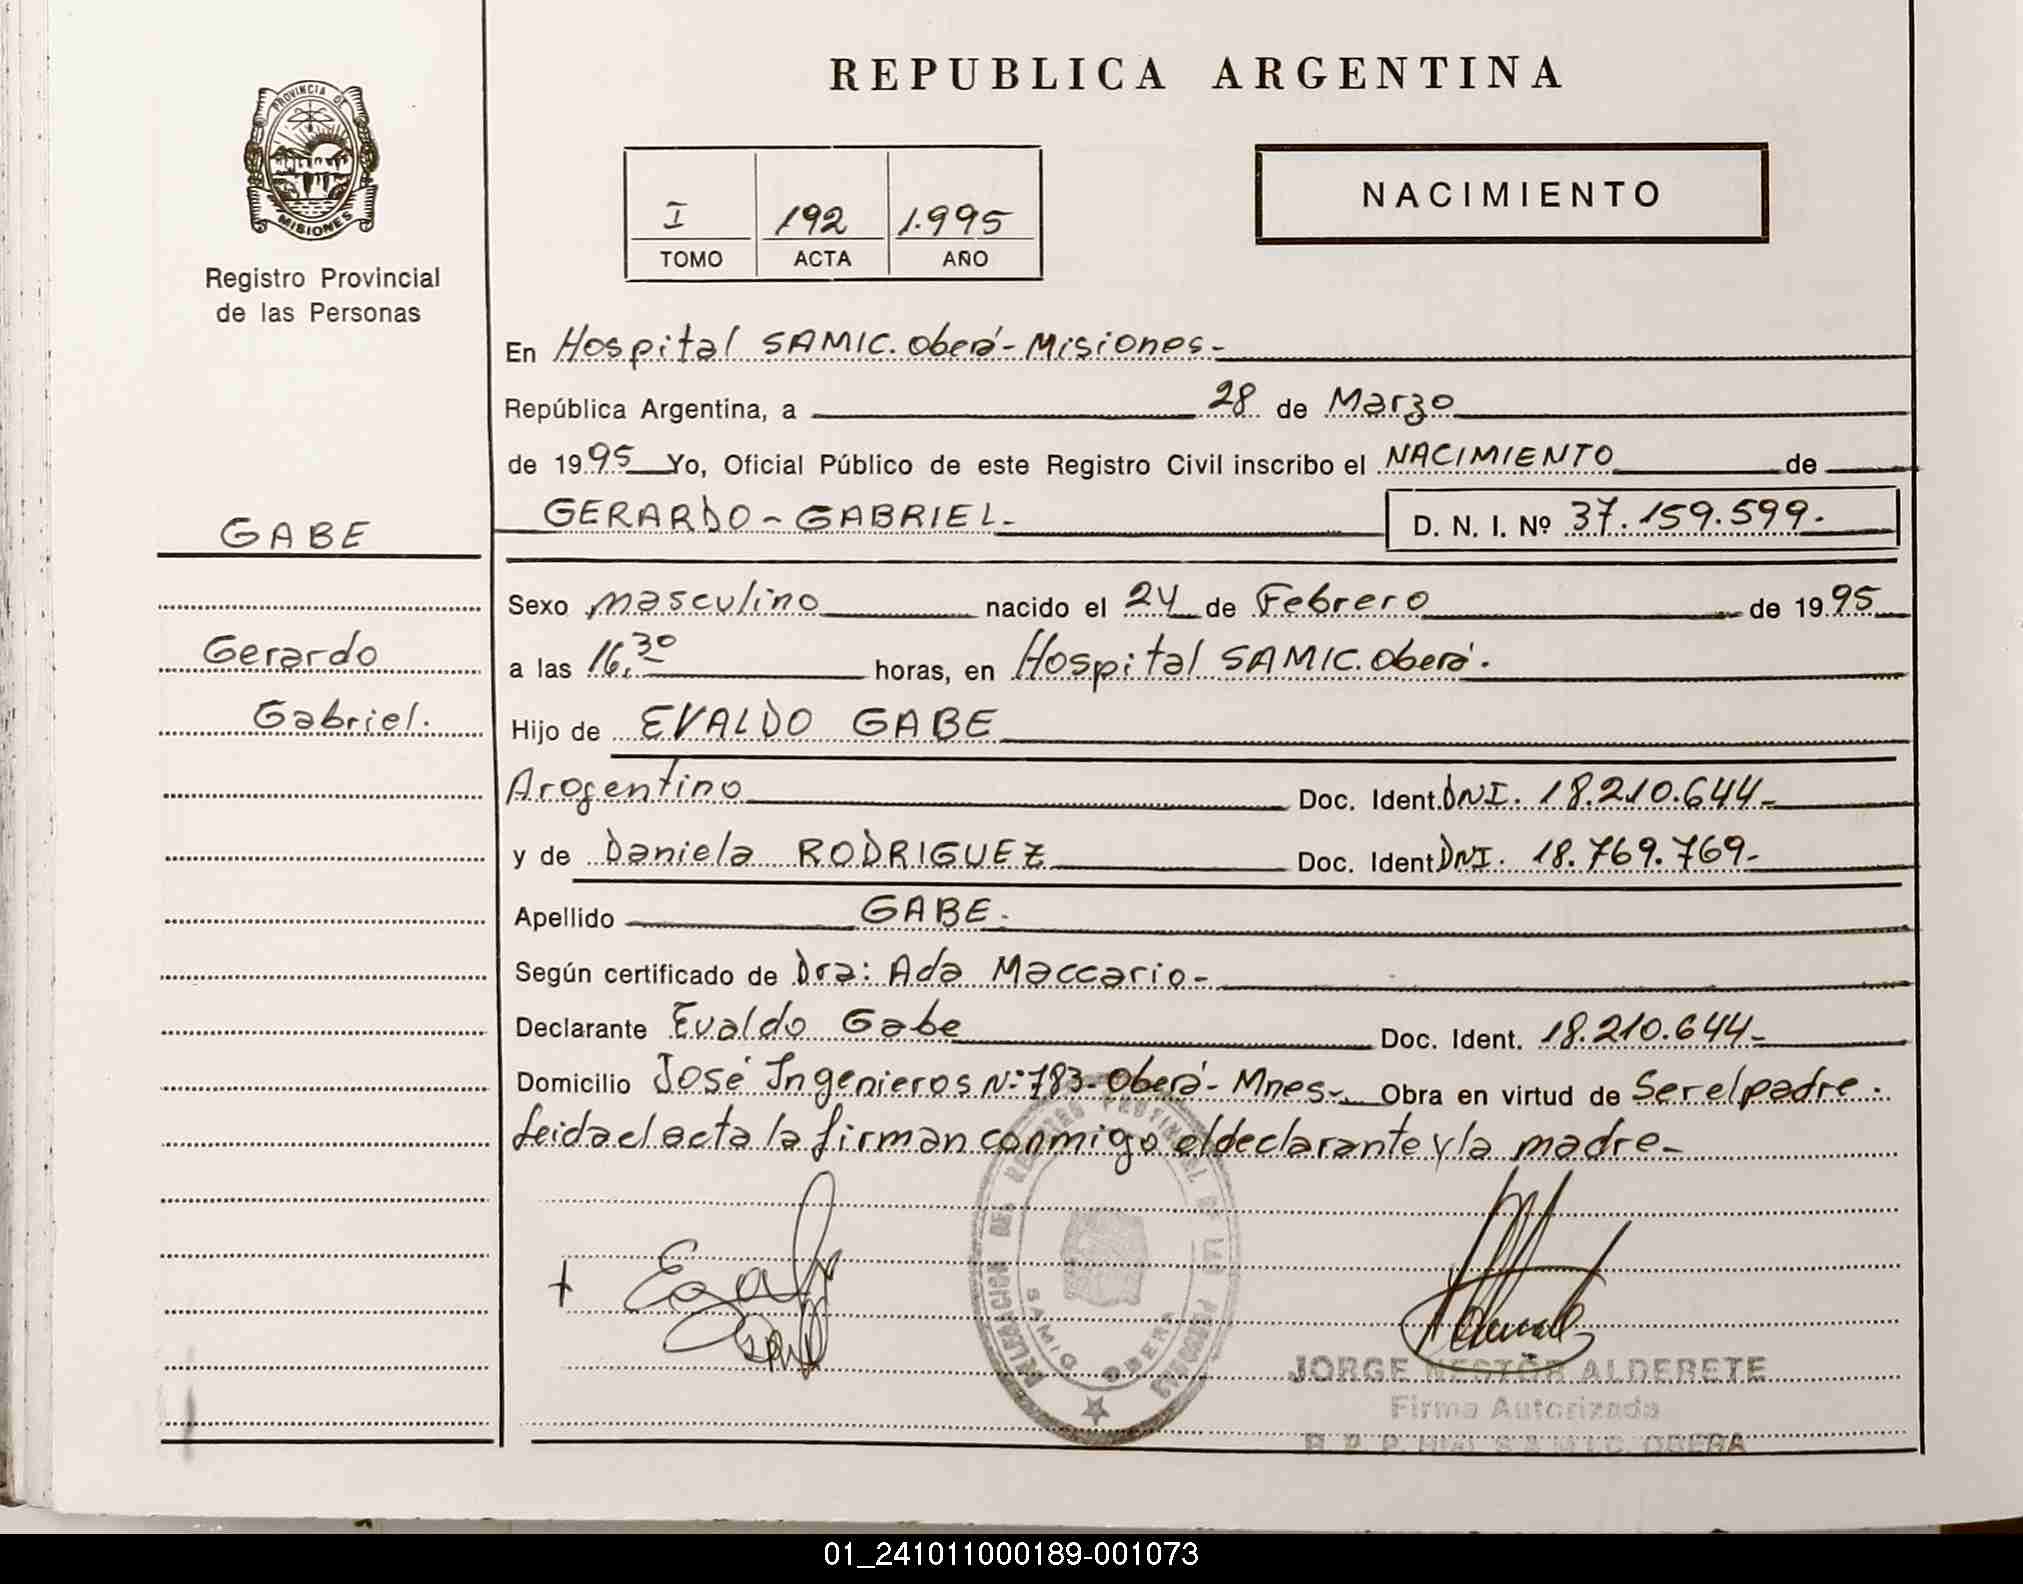 PROVINCIA DE
MISIONES
Registro Provincial
de las Personas
REPUBLICA ARGENTINA
I 192 1.995
TOMO ACTA AÑO
NACIMIENTO
En Hospital SAMIC. Oberá - Misiones -
República Argentina, a 28 de Marzo
de 1995 Yo, Oficial Público de este Registro Civil inscribo el NACIMIENTO de
GERARDO - GABRIEL - D. N. I. Nº 37.159.599.-
GABE
Gerardo
Gabriel.
Sexo masculino nacido el 24 de Febrero de 1995
a las 16,30 horas, en Hospital SAMIC. Oberá.
Hijo de EVALDO GABE
Argentino Doc. Ident. DNI. 18.210.644-
y de Daniela RODRIGUEZ Doc. Ident DNI. 18.769.769-
Apellido GABE.
Según certificado de Dra: Ada Maccario-
Declarante Evaldo Gabe Doc. Ident. 18.210.644-
Domicilio José Ingenieros Nº 783 - Oberá - Mnes - Obra en virtud de Ser el padre.
Leida el acta la firman conmigo el declarante y la madre-
SAMIC OBERA
JORGE NESTOR ALDERETE
Firma Autorizada
R. P. P. S.A.M.I.C. OBERA
01_241011000189-001073